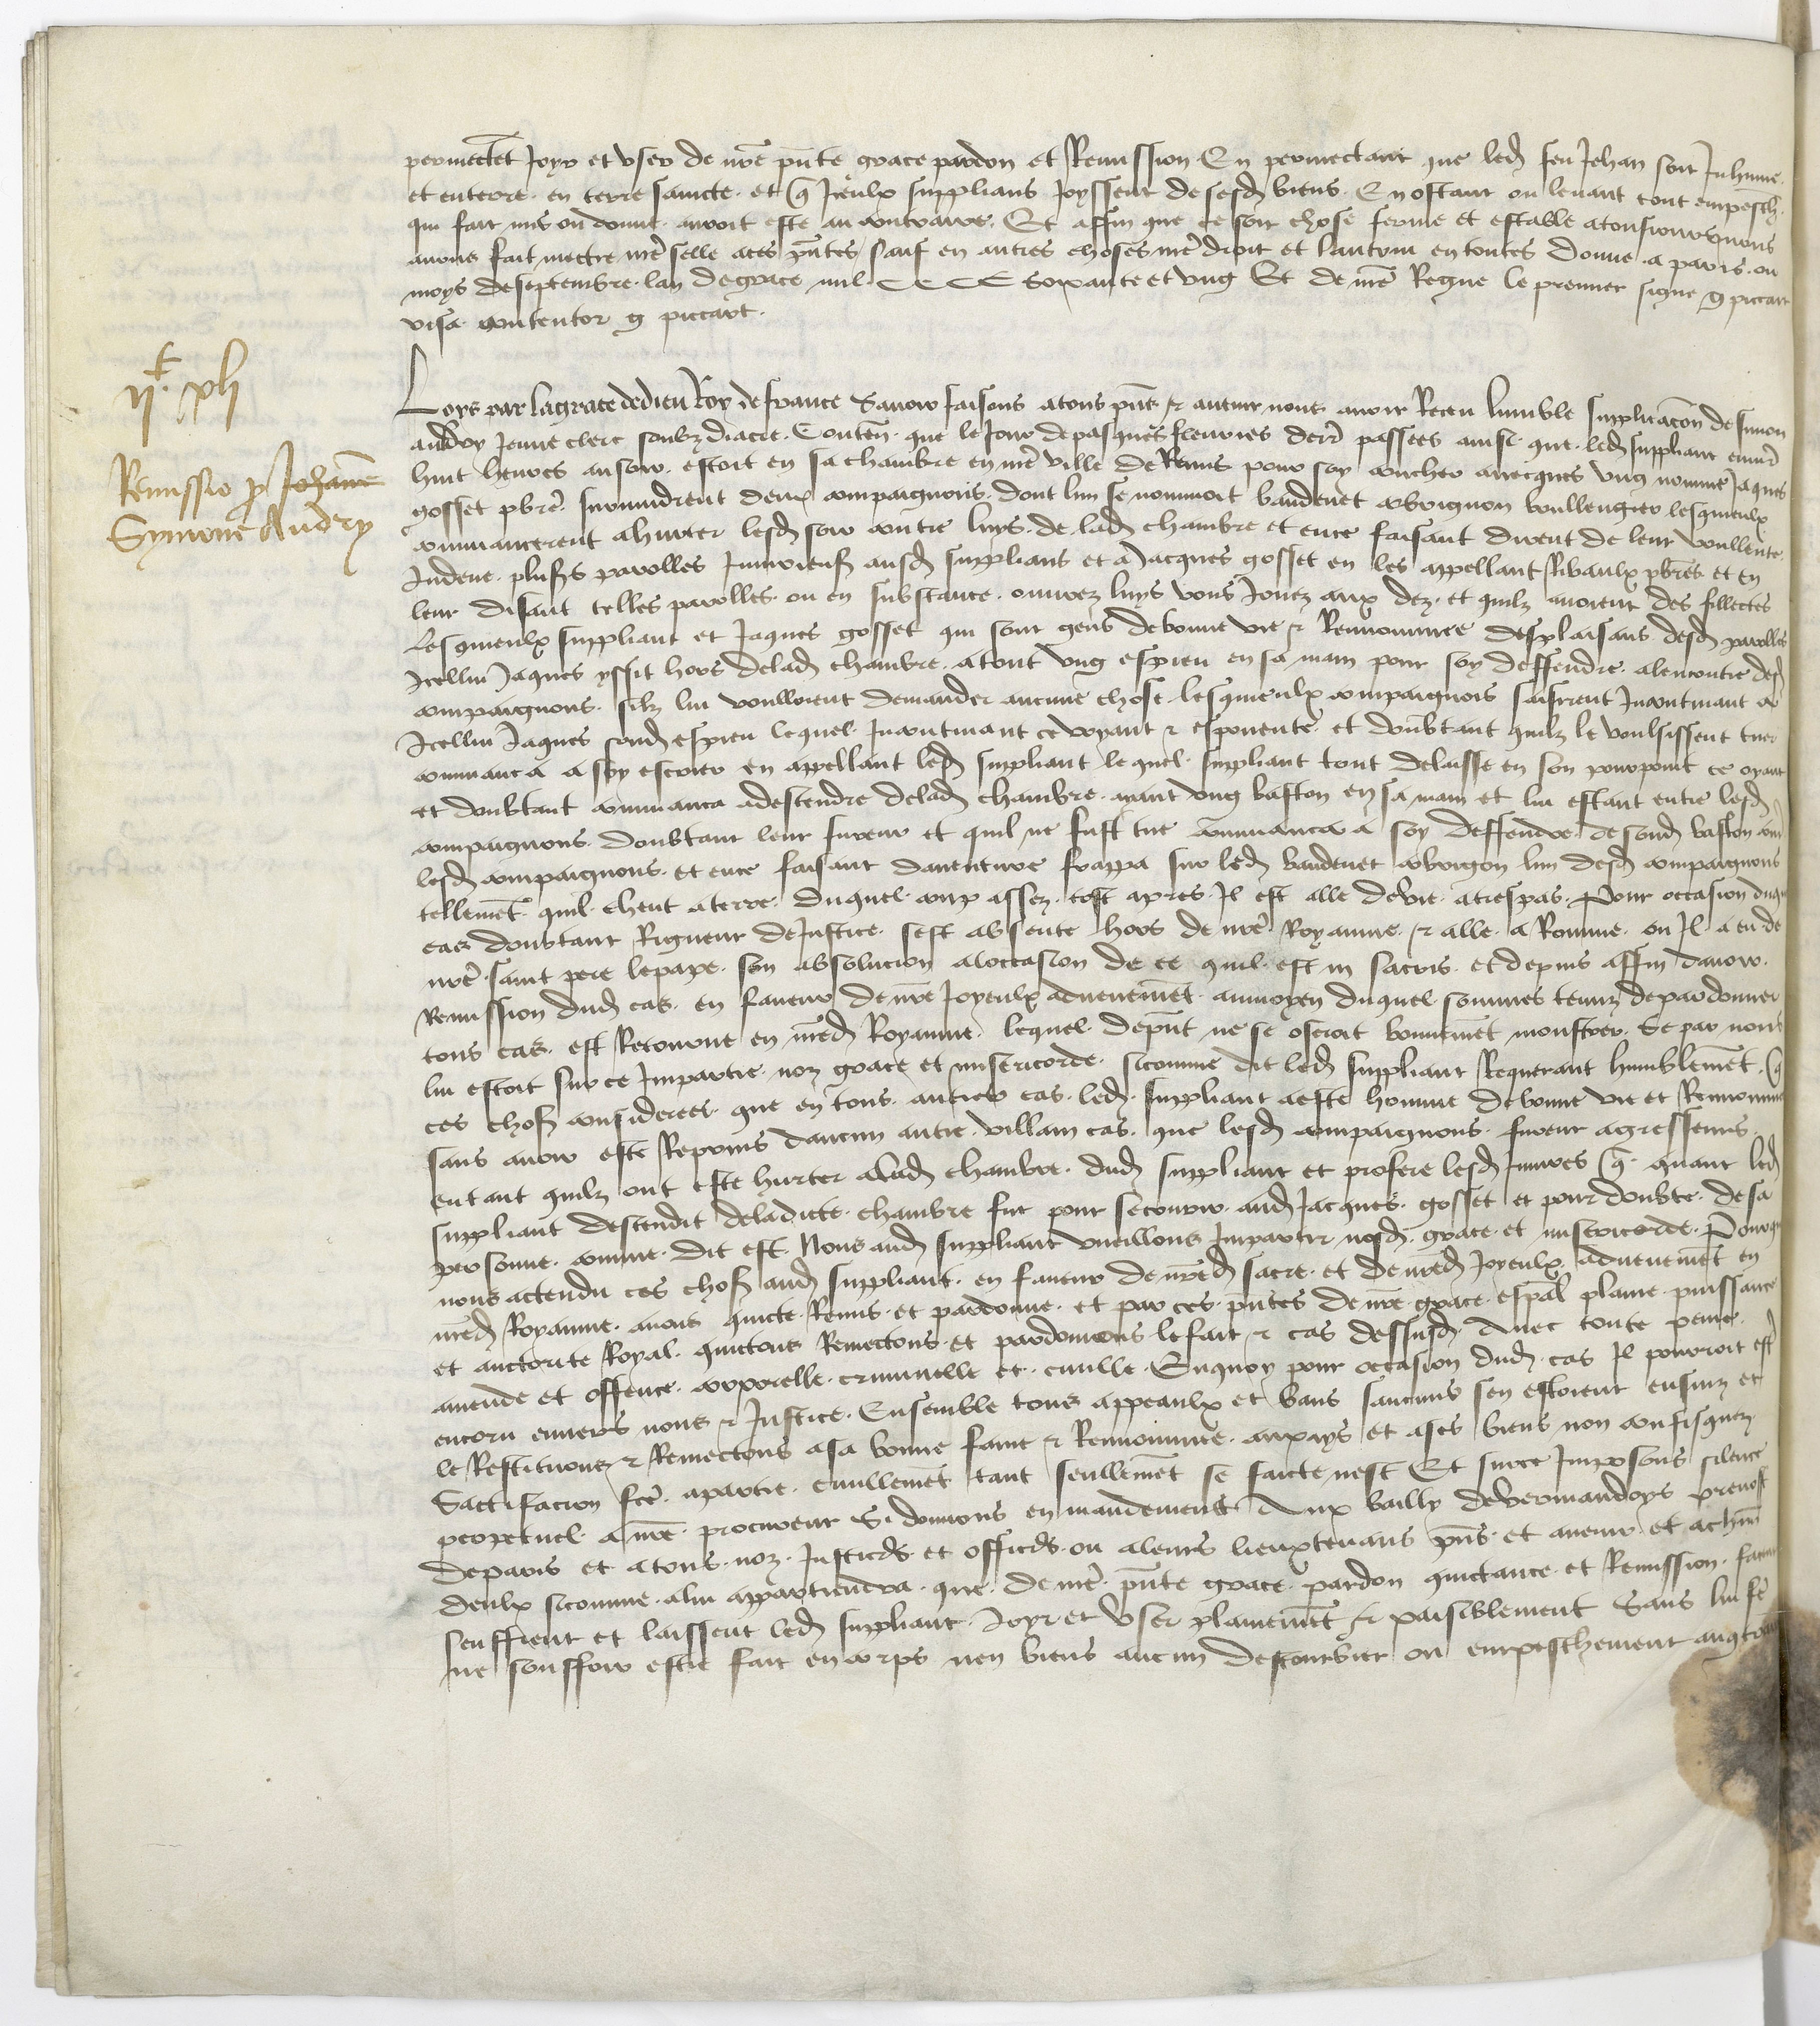 permectet joyr et user de nre pnte grace pardon et Remission En permectant que led feu Jehan soit Inhume
et enterre en terre saincte et q Iceulx supplians joyssent de sesd biens En ostant ou levant tout empesch
qui fait mis ou donne auroit este au contraire Et affin que ce soit chose ferme et estable atousiours nous
avons fait mectre nre seelle aces pntes sauf en autres choses nre droit et lautruy en toutes Donne a paris ou
moys de septembre lan de grace mil CCCC soixante et ung Et de nre Regne le premier signe g piccart
visa contentor g piccart
ii c xli
Remissio p Johanne
Symone Audry
Loys par la grace de dieu Roy de france Savoir faisons atous pns et avenir nous avoir Receu lumble supplicacon de simon
audry jeune clerc soubzdiacre Conten que le jour de pasques fleuries derr passees ainsi que led suppliant envir
huit heures au soir estoit en sa chambre en nre ville de Reims pour soy coucher avecques ung nomme Jaques
gosset pbre survindrent deux compaignons dont lun se nommoit baudenet corvignon boullengier lesquieulx
commancerent ahurter lesd soir contre luys de lad chambre et en ce faisant dirent de leur voullente
Indeue plusrs parolles Injurieuses ausd suppliant et a Jacques gosset en les appellant Ribaulx pbres et en
leur disant telles parolles ou en substance ouvrez luys vous jouez aux dez et quilz avoient des fillectes
Lesquieulx suppliant et Jaques gosset qui sont gens de bonne vie et Renommee desplaisans desd parolles
Icellui Jaques yssit hors delad chambre atout ung espieu en sa main pour soy deffendre alencontre desd
compaignons silz lui vouloient demander aucune chose lesquieulx compaignons saisirent Incontinant
Icellui Jaques soud espieu lequel Incontinant ce voyant et espouente et doubtant quilz le voulsissent tuer
commanca a soy escrier en appellant led suppliant lequel suppliant tout delaisse en son pourpoint ce oyant
et doubtant commanca adescendre delad chambre ayant ung baston en sa main et lui estant entre lesd
compaignons doubtant leur fureur et quil ne fust tue commanca a soy deffendre de sond baston contre
lesd compaignons et en ce faisant daventure frappa sur led baudenet corvigon lun desd compaignons
tellemet quil cheut aterre duquel coup assez tost apres Il est alle de vie atrespas Pour occasion duquel
cas doubtant Rigueur de Justice sest absente hors de nre Royaume et alle a Romme ou Il a eu de
nre saint pere le pape son absolucion aloccasion de ce quil est in sacris et depuis affin davoir
Remission dud cas en faveur de nre joyeulx advenemet aumoyen duquel sommes tenuz de pardonner
tous cas est Retourne en nred Royaume lequel depnt ne se oseroit bonnemet monstrer se par nous
lui estoit sur ce Impartie noz grace et misericorde sicomme dit led suppliant Requerant humblemet q
ces choses considerees que en tous autres cas led suppliant aeste homme de bonne vie et Renommee
sans avoir este Reprins daucun autre villain cas que lesd compaignons furent agresseurs
entant quilz ont este hurter alad chambre dud suppliant et profere lesd Injures q quant led
suppliant descendit deladicte chambre fut pour secourir aud Jacques gosset et pour doubte de sa
personne comme dit est Nous aud suppliant vueillons Impartir nosd grace et misericorde Pourquoy
nous actendu ces choses aud suppliant en faveur de nred sacre et de nred joyeulx advenement en
nred Royaume avons quicte Remis et pardonne et par ces pntes de nre grace espal plaine puissance
et auctorite Royal quictons Remectons et pardonnons le fait et cas dessusd Avec toute peine
amende et offence corporelle criminelle et civille Enquoy pour occasion dud cas Il pourroit est
encoru envers nous et Justice Ensemble tous appeaulx et bans saucuns sen estoient ensuiz et
le Restituons et Remectons asa bonne fame et Renommee aupays et ases biens non confisquez
Sactifacion fce apartie civillemet tant seullemet se faicte nest Et sur ce Imposons silence
perpetuel a nre procureur Si donnons en mandement Aux bailly de vermandoys prevost
deparis et atous noz Justicrs et officrs ou aleurs lieuxtenans pns et avenir et achun
deulx sicomme alui appartiendra que de nre pnte grace pardon quictance et Remission facent
seuffrent et laissent led suppliant joyr et user plainemet et paisiblement Sans lui fe
ne souffrir estre fait en corps nen biens aucun destourbier ou empeschement aucontr